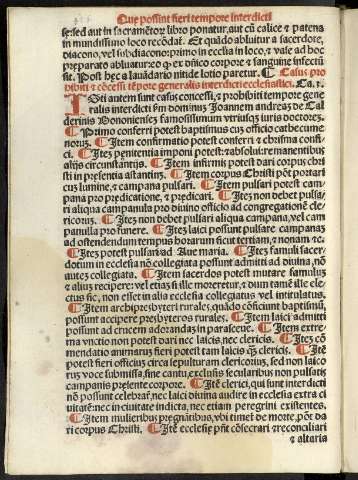 Que possunt fieri tempore interdicti
se: sed aut in sacramētorū libro ponatur, aut cū calice & patena
in mundissimo loco recōdať. Et quādo abluitur a sacerdote,
diacono, vel subdiacono: primo in ecclesia in loco, & vase ad hoc
preparato abluatur: eo ꝙ ex dñico corpore & sanguine infectū
sit. Post hec a lauādario nitide lotio paretur. ¶ Casus pro
hibiti & cōcessi tēpore generalis interdicti ecclesiastici. Ca. x.
ISti autem sunt casus concessi, & prohibiti tempore gene
ralis interdicti ẜm dominū Joannem andreas de Cal
derinis Bononiensez famosissimum vtriusqꝫ iuris doctorez.
¶ Primo conferri potest baptismus cuz officio cathecume
norum. ¶ Itez confirmatio potest conferri & chrisma confi
ci. ¶ Itez penitentia imponi potest: & absolui: & renanctib9 cuz
alijs circunstantijs. ¶ Item infirmis potest dari corpus chri
sti in presentia astantium. ¶ Item corpus Christi pōt portari
cuz lumine, & campana pulsari. ¶ Item pulsari potest cam-
pana pro predicatione, & predicari. ¶ Itez non debet pulsa-
ri aliqua campanula pro diuino officio ad congregationē cle-
ricorum. ¶ Itez non debet pulsari aliqua campana, vel cam
panulla pro funere. ¶ Itez laici possunt pulsare campanas
ad ostendendum tempus horarum sicut tertiam, & nonam &c.
¶ Itez potest pulsari ad Aue maria. ¶ Itez famuli sacer-
dotum in ecclesia nō collegiata possunt admitti ad diuina, nō
autez collegiata. ¶ Item sacerdos potest mutare famulum
& alius recipere: vel etiaz si ille moreretur, & dum tamē ille ele-
ctus sic, non esset in alia ecclesia collegiatus vel intitulatus.
¶ Item archipresbyteri rurales, quādo cōficiunt baptismū,
possunt accipere presbyteros rurales. ¶ Item laici admitti
possunt ad crucem adorandaz in parasceue. ¶ Item extre-
ma vnctio non potest dari nec laicis, nec clericis. ¶ Itez cō
mendatio animarum fieri potest tam laicis qꝫ clericis. ¶ Itē
potest fieri officiuz circa sepulturam clericorum, sed non laico
rus voce submissa sine cantu, exclusis secularibus non pulsatis
campanis presente corpore. ¶ Itē clerici, qui sunt interdicti
nō possunt celebrař, nec laici diuina audire in ecclesia extra ci
uitatē: nec in ciuitate indicta, nec etiam peregrini existentes.
¶ Item mulieribus pregnātibus, vbi timet de morte, pōt da
ri corpus Christi. ¶ Itē ecclesię pñt cōsecrari & reconciliari
& altaria